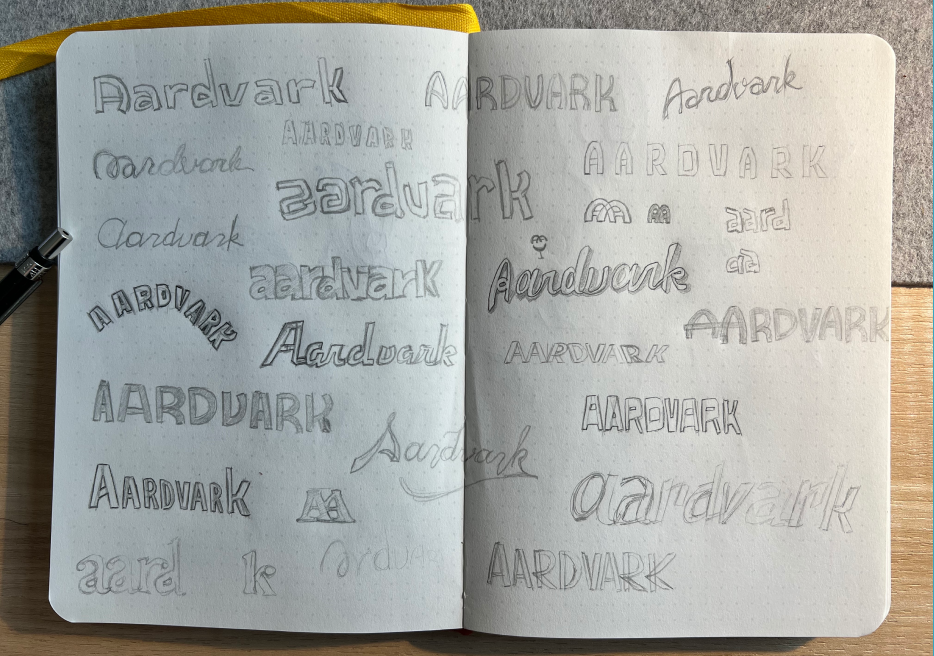 Aardvark
AARDVARK
Aardvark
AARDVARK
aardvark
AARDVARK
aardvark
AA AA
aard
Aardvark
aa
aardvark
Aardvark
AARDVARK
AARDVARK
Aardvark
AARDVARK
AARDVARK
AARDVARK
Aardvark
AARDVARK
AA
aardvark
aard k
AARDVARK